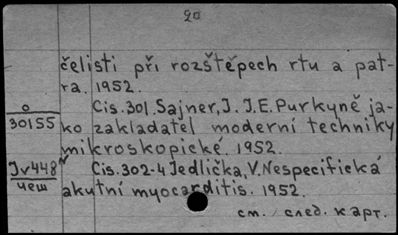 20
čelisti při rozštěpech rtu a pat-
ra. 1952.
o Cis. 301. Sajner, J. J. E. Purkyně ja-
30155 ko zakladatel moderní techniky
mikroskopické. 1952.
Jv448 Cis. 302-4 Jedlička, V. Nespecifická
чеш akutní myocarditis. 1952.
см. след. карт.